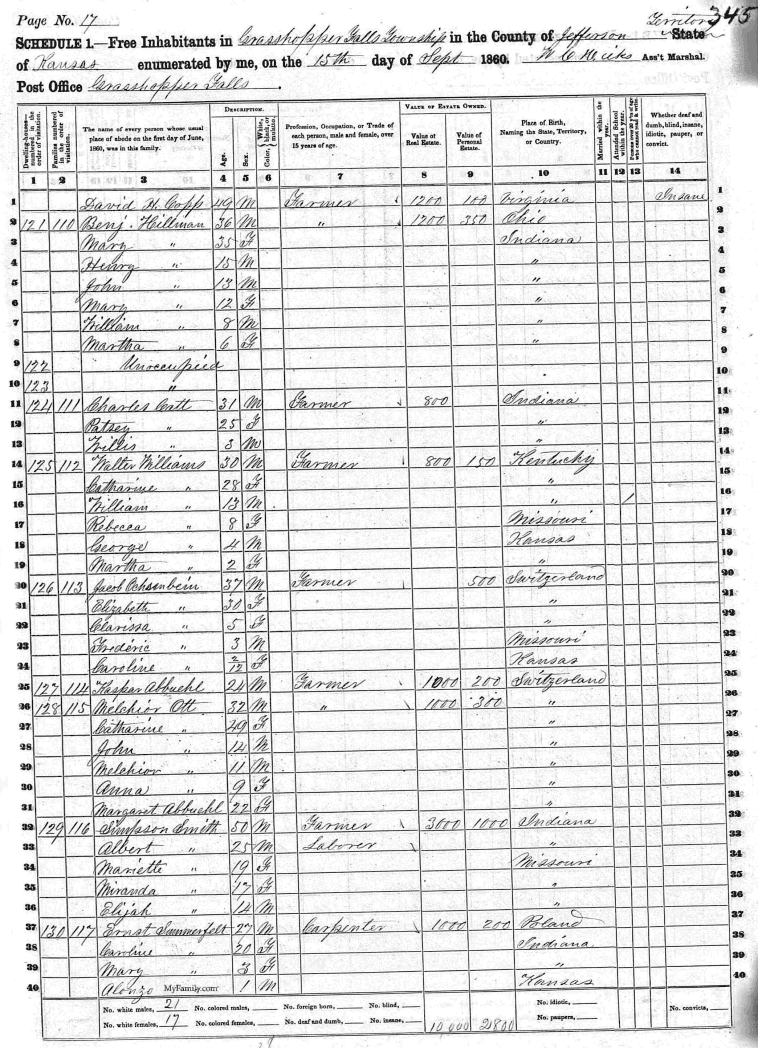 Page No. 17 Territory 345
SCHEDULE 1.—Free Inhabitants in Grasshopper Falls Township in the County of Jefferson State
of Kansas enumerated by me, on the 15th day of Sept 1860. Ass't Marshal.
Post Office Grasshopper Falls.
DESCRIPTION. VALUE OF ESTATE OWNED.
Dwelling-houses—numbered in the order of visitation.
Families numbered in the order of visitation.
The name of every person whose usual place of abode on the first day of June, 1860, was in this family.
Age.
Sex.
Color, White, black, or mulatto.
Profession, Occupation, or Trade of each person, male and female, over 15 years of age.
Value of Real Estate.
Value of Personal Estate.
Place of Birth, Naming the State, Territory, or Country.
Married within the year.
Attended School within the year.
Persons over 20 y'rs of age who cannot read & write.
Whether deaf and dumb, blind, insane, idiotic, pauper, or convict.
1 2 3 4 5 6 7 8 9 10 11 12 13 14
1 David H. Copp 49 M Farmer 1200 100 Virginia Insane 1
2 121 110 Benj. Hillman 36 M " 1200 350 Ohio 2
3 Mary " 35 F Indiana 3
4 Henry " 15 M " 4
5 John " 13 M " 5
6 Mary " 12 F " 6
7 William " 8 M " 7
8 Martha " 6 F " 8
9 122 Unoccupied 9
10 123 " 10
11 124 111 Charles Catt 31 M Farmer 800 Indiana 11
12 Patsey " 25 F " 12
13 Willis " 3 M " 13
14 125 112 Walter Williams 30 M Farmer 800 150 Kentucky 14
15 Catharine " 28 F " 15
16 William " 13 M " 1 16
17 Rebecca " 8 F Missouri 17
18 George " 4 M Kansas 18
19 Martha " 2 F " 19
20 126 113 Jacob Ochsenbein 37 M Farmer 500 Switzerland 20
21 Elizabeth " 30 F " 21
22 Clarissa " 5 F " 22
23 Frederic " 3 M Missouri 23
24 Caroline " 2/12 F Kansas 24
25 127 114 Kasper Abbuehl 24 M Farmer 1000 200 Switzerland 25
26 128 115 Melchior Ott 32 M " 1000 300 " 26
27 Catharine " 49 F " 27
28 John " 14 M " 28
29 Melchior " 11 M " 29
30 Anna " 9 F " 30
31 Margaret Abbuehl 22 F " 31
32 129 116 Simpson Smith 50 M Farmer 3000 1000 Indiana 32
33 Albert " 25 M Laborer " 33
34 Mariette " 19 F Missouri 34
35 Miranda " 17 F " 35
36 Elijah " 14 M " 36
37 130 117 Ernst Summerfelt 27 M Carpenter 1000 200 Poland 37
38 Carline " 20 F Indiana 38
39 Mary " 3 F " 39
40 Alonzo MyFamily.com 1 M Kansas 40
No. white males, 21 No. colored males, No. foreign born, No. blind, No. idiotic,
No. white females, 17 No. colored females, No. deaf and dumb, No. insane, 10,000 2800 No. paupers, No. convicts,